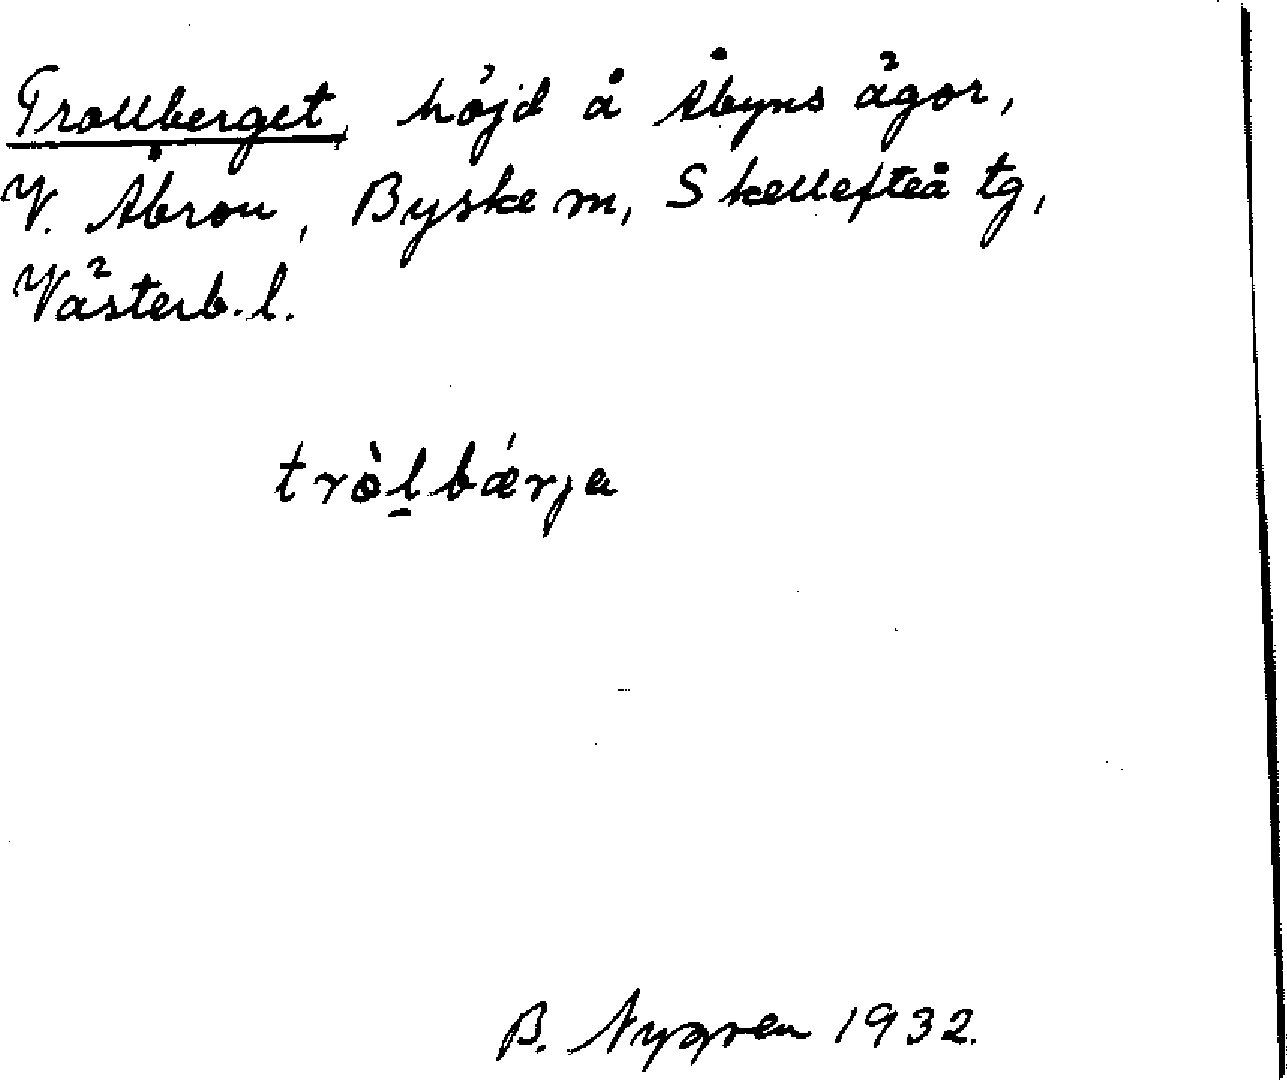 Trollberget, höjd å Åbyns ägor,
V. Åbron, Byske sn, Skellefteå tg,
Västerb. l.
tròl̠bǽrja
B. Nygren 1932.